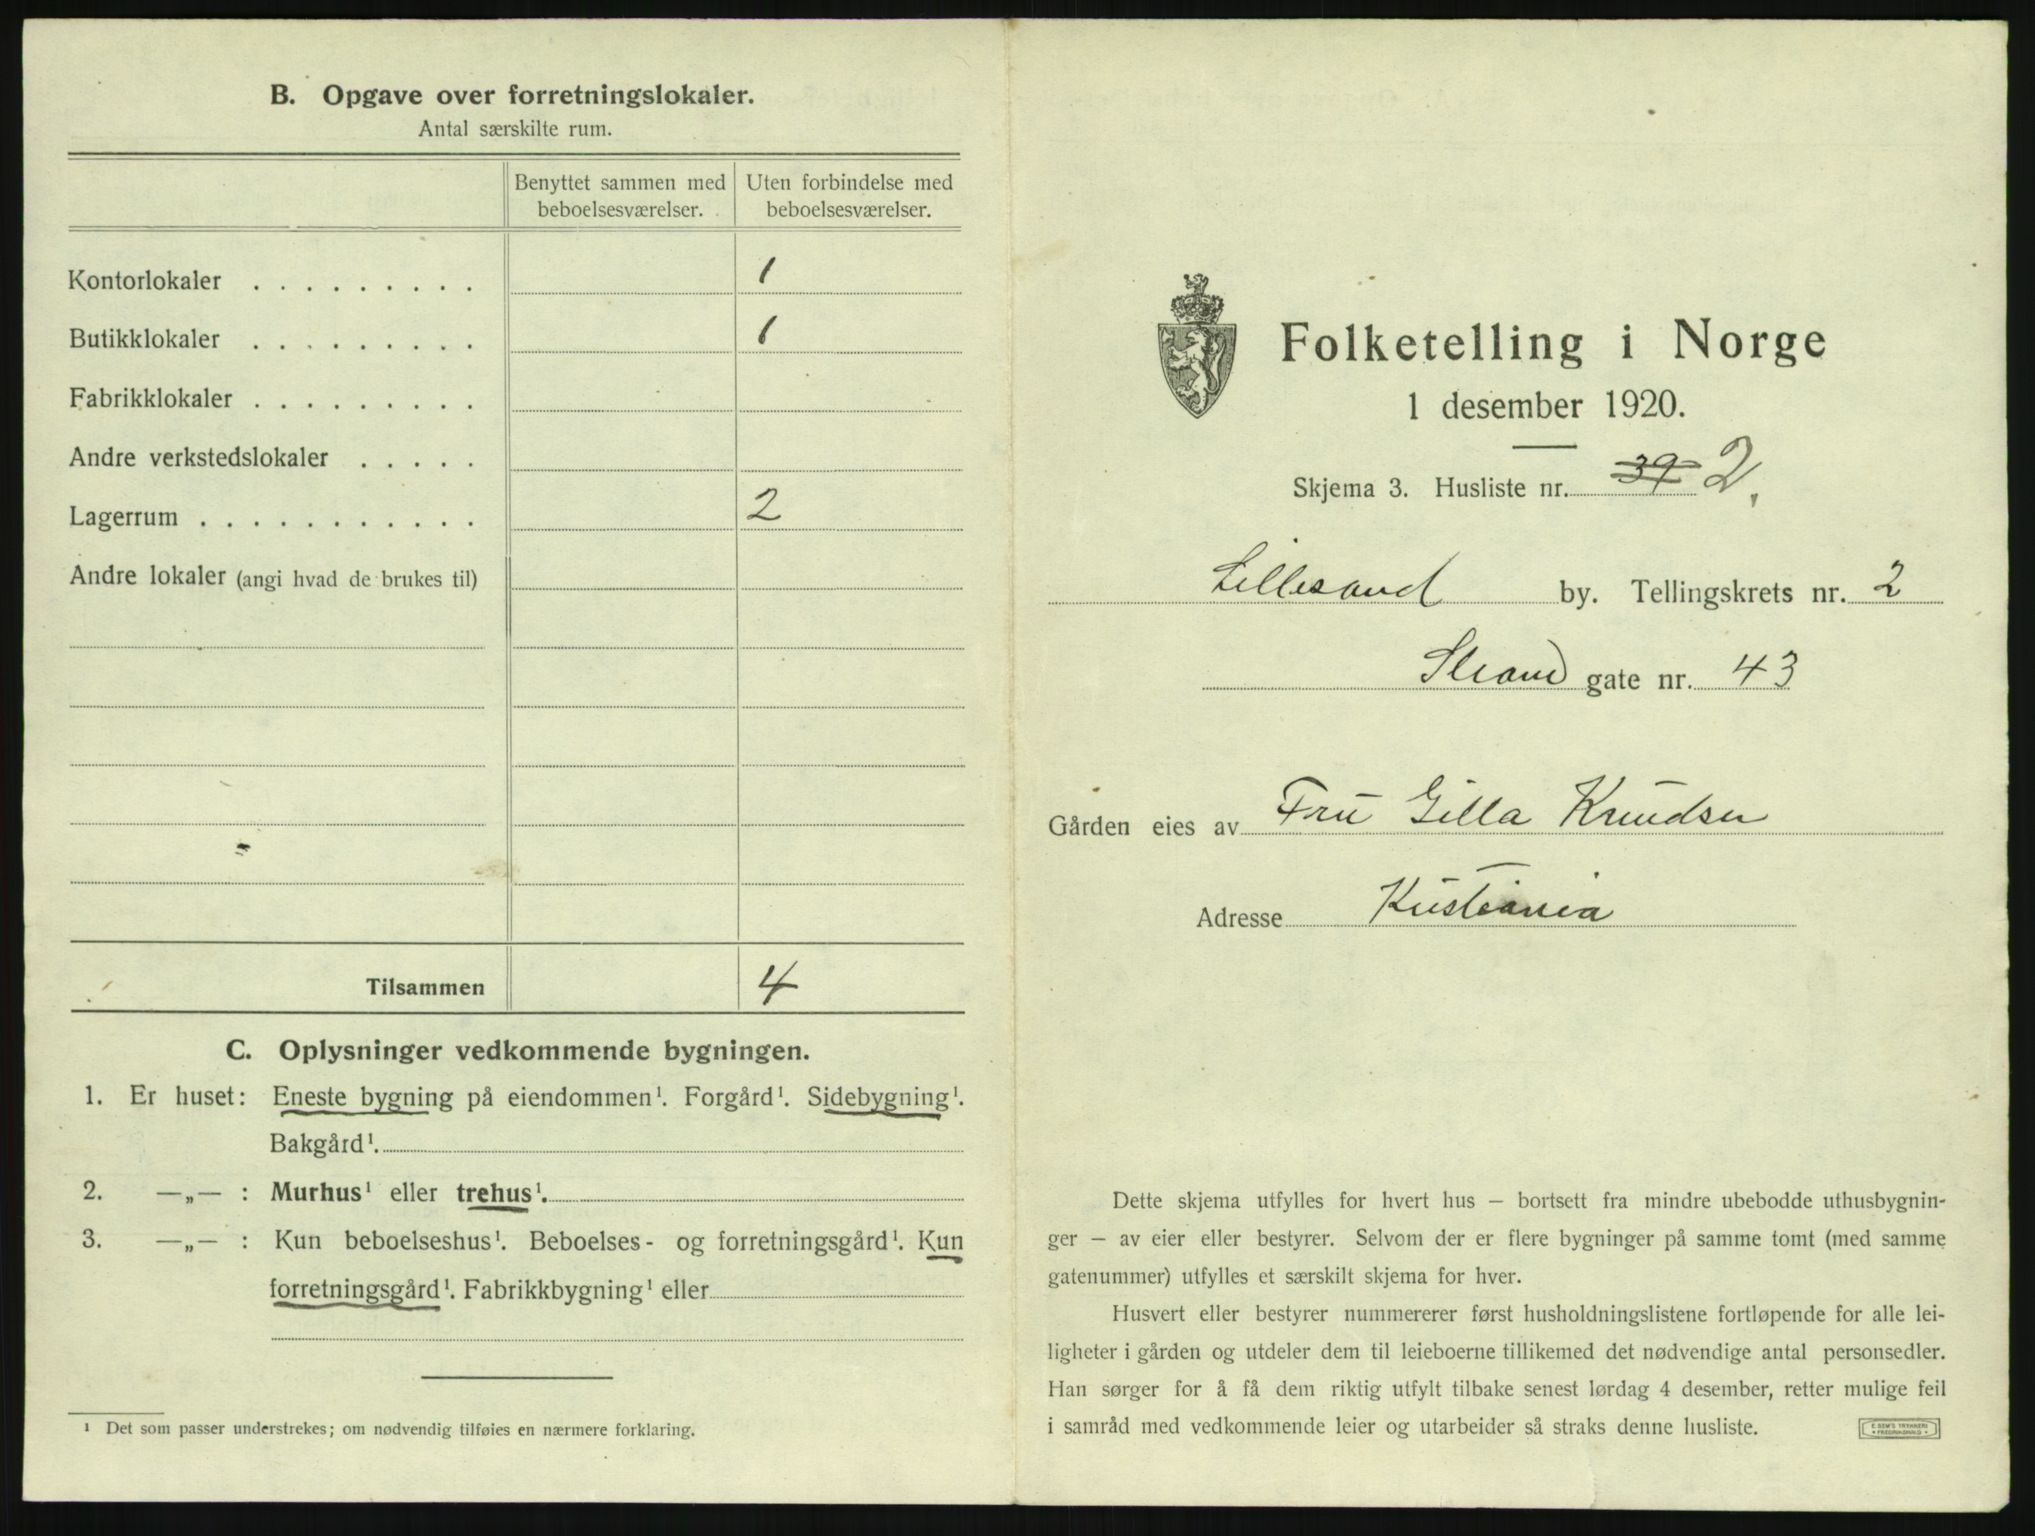 B. Opgave over forretningslokaler.
Antal særskilte rum.
Benyttet sammen med beboelsesværelser.
Uten forbindelse med beboelsesværelser.
Kontorlokaler . . . . . . . . . 1
Butikklokaler . . . . . . . . . 1
Fabrikklokaler . . . . . . . . .
Andre verkstedslokaler . . . . .
Lagerrum . . . . . . . . . . . 2
Andre lokaler (angi hvad de brukes til)
Tilsammen 4
C. Oplysninger vedkommende bygningen.
1. Er huset: Eneste bygning på eiendommen¹. Forgård¹. Sidebygning¹.
Bakgård¹.
2. —„— : Murhus¹ eller trehus¹.
3. —„— : Kun beboelseshus¹. Beboelses- og forretningsgård¹. Kun
forretningsgård¹. Fabrikkbygning¹ eller
¹ Det som passer understrekes; om nødvendig tilføies en nærmere forklaring.
Folketelling i Norge
1 desember 1920.
Skjema 3. Husliste nr. 39 2.
Lillesand by. Tellingskrets nr. 2
Strand gate nr. 43
Gården eies av Fru Gilla Knudsen
Adresse Kristiania
Dette skjema utfylles for hvert hus — bortsett fra mindre ubebodde uthusbygnin-
ger — av eier eller bestyrer. Selvom der er flere bygninger på samme tomt (med samme
gatenummer) utfylles et særskilt skjema for hver.
Husvert eller bestyrer nummererer først husholdningslistene fortløpende for alle lei-
ligheter i gården og utdeler dem til leieboerne tillikemed det nødvendige antal personsedler.
Han sørger for å få dem riktig utfylt tilbake senest lørdag 4 desember, retter mulige feil
i samråd med vedkommende leier og utarbeider så straks denne husliste.
E. SEM'S TRYKKERI
FREDRIKSHALD